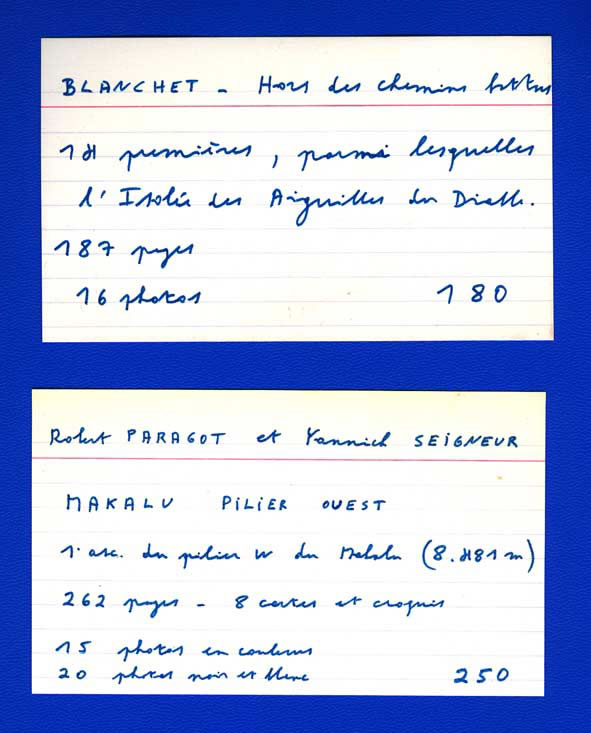 BLANCHET - Hors des chemins battus
14 premières, parmi lesquelles
l'Isolée des Aiguilles du Diable.
187 pages
16 photos 180
Robert PARAGOT et Yannick SEIGNEUR
MAKALU PILIER OUEST
1. asc. du pilier W du Makalu (8.481 m)
262 pages - 8 cartes et croquis
15 photos en couleurs
20 photos noir et blanc 250